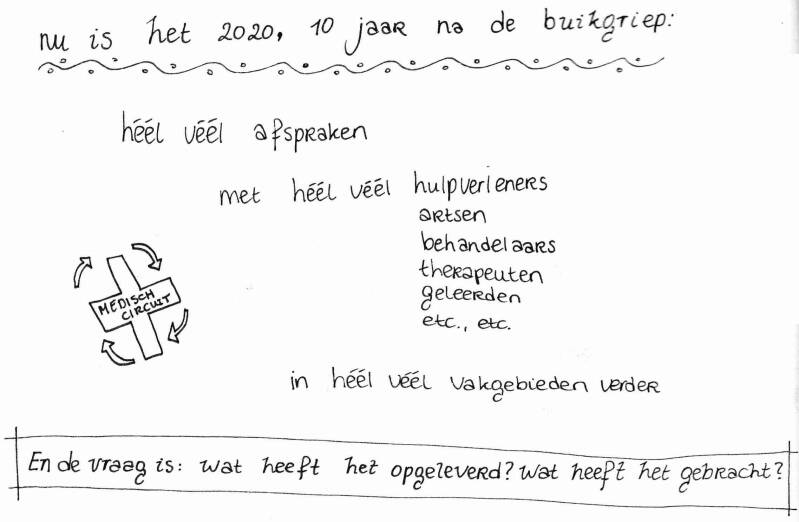 nu is het 2020, 10 jaar na de buikgriep:
héél véél afspraken
met héél véél hulpverleners
artsen
behandelaars
therapeuten
geleerden
etc., etc.
MEDISCH
CIRCUIT
in héél véél vakgebieden verder
En de vraag is: wat heeft het opgeleverd? Wat heeft het gebracht?